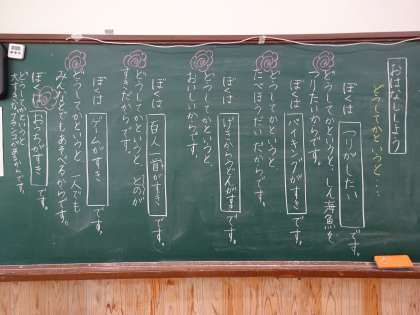 おはなししよう
どうしてかというと…
ぼくは つりがしたい です。
どうしてかというと、しん海魚を
つりたいからです。
ぼくは バイキングがすき です。
どうしてかというと、
たべほうだい だからです。
ぼくは げきからうどんがすき です。
どうしてかというと、
おいしいからです。
ぼくは 百人一首がすき です。
どうしてかというと、とるのが
すきだからです。
ぼくは ゲームがすき です。
どうしてかというと 一人でも
みんなとでもあそべるからです。
ぼくは がすき です。
どうしてかというと
があるからです。